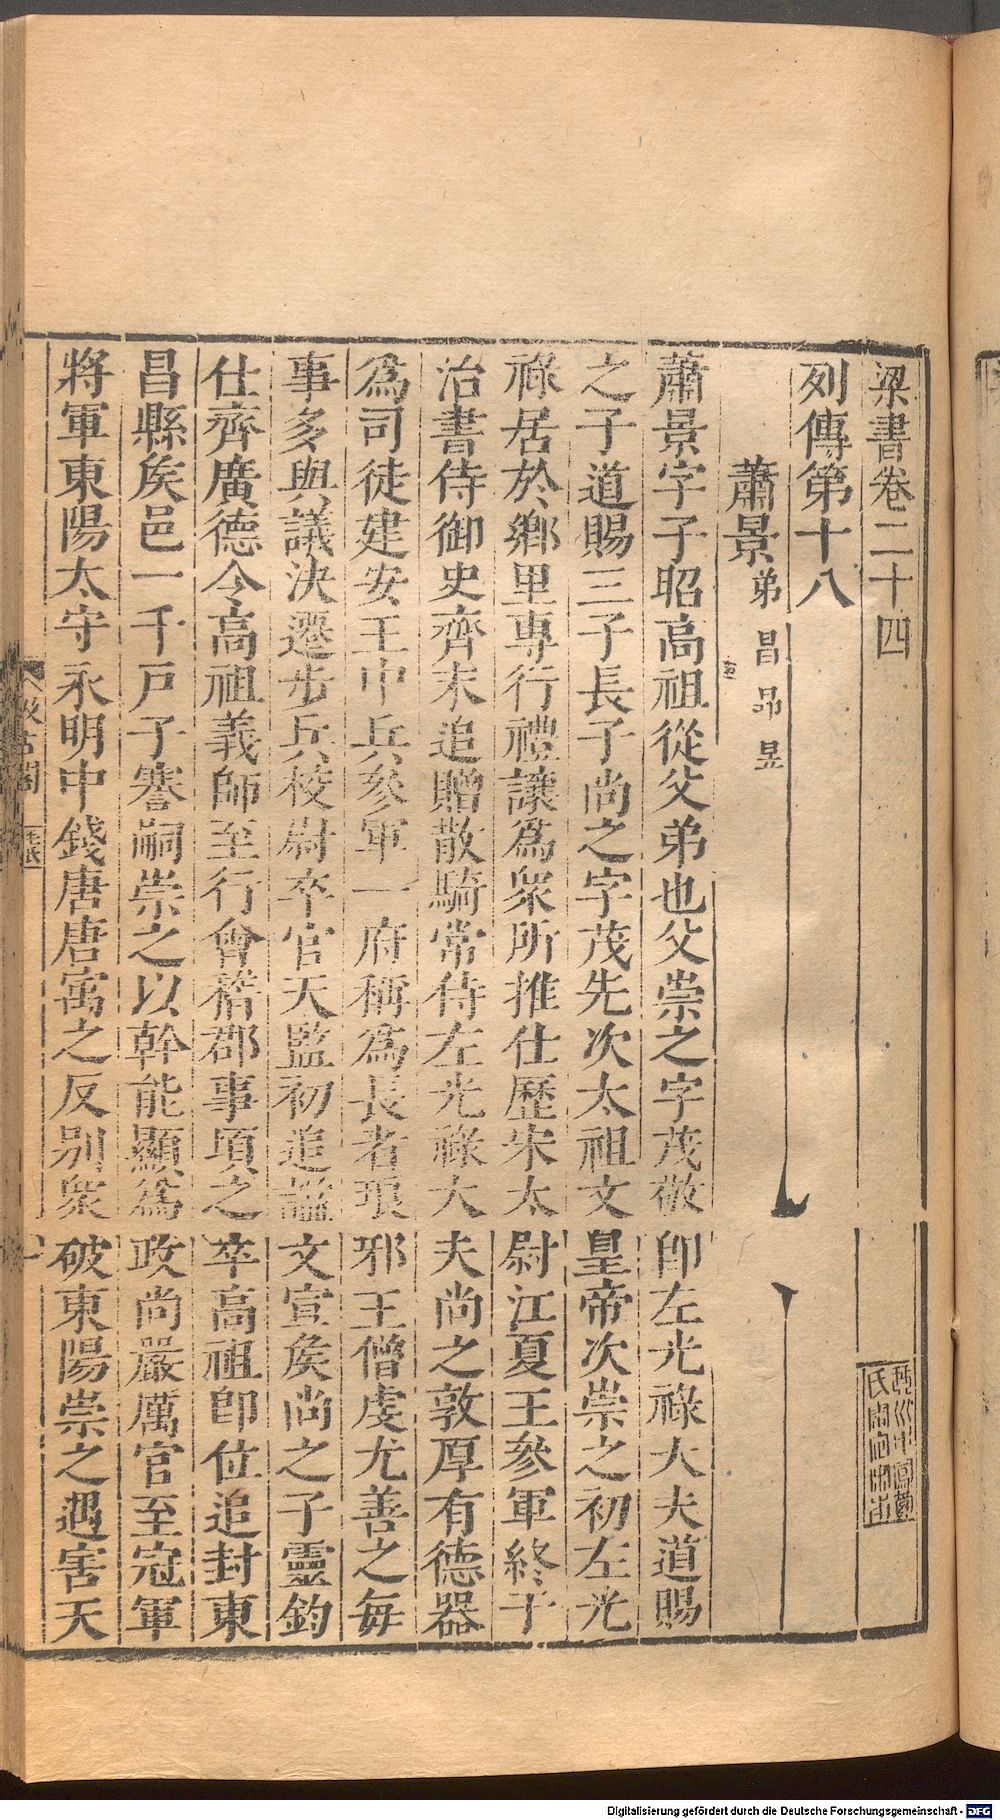 梁書卷二十四
列傳第十八
蕭景弟 昌 昂 昱
蕭景字子昭高祖從父弟也父崇之字茂敬卽左光祿大夫道賜
之子道賜三子長子尚之字茂先次太祖文皇帝次崇之初左光
祿居於鄉里專行禮讓爲衆所推仕歷宋太尉江夏王參軍終于
治書侍御史齊末追贈散騎常侍左光祿大夫尚之敦厚有德器
爲司徒建安王中兵參軍一府稱爲長者琅邪王僧虔尤善之每
事多與議決遷步兵校尉卒官天監初追諡文宣矦尚之子靈鈞
仕齊廣德令高祖義師至行會稽郡事頃之卒高祖卽位追封東
昌縣矦邑一千戸子謇嗣崇之以幹能顯爲政尚嚴厲官至冠軍
將軍東陽太守永明中錢唐唐㝢之反別衆破東陽崇之遇害天
汲古閣
Digitalisierung gefördert durch die Deutsche Forschungsgemeinschaft - DFG